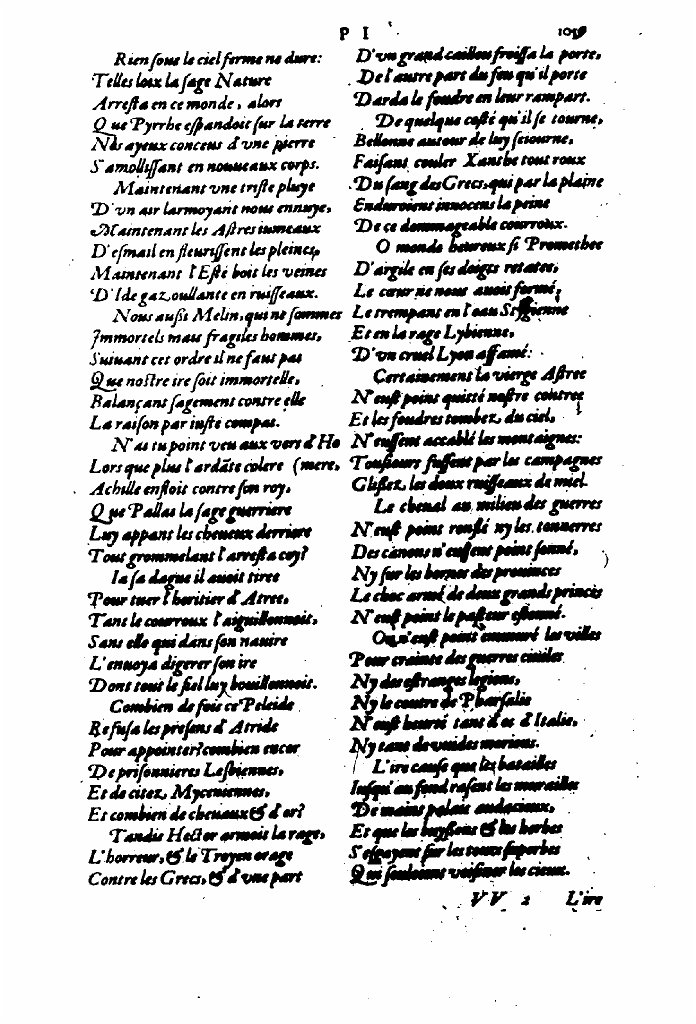 P I
1059
Rien sous le ciel ferme ne dure:
Telles loix la sage Nature
Arresta en ce monde, alors
Que Pyrrhe espandoit sur la terre
Nos ayeux conceus d'vne pierre
S'amollissant en nouueaux corps.
Maintenant vne triste pluye
D'vn air larmoyant nous ennuye,
Maintenant les Astres iumeaux
D'esmail en fleurissent les pleines,
Maintenant l'Esté boit les veines
D'Ide gazoullante en ruisseaux.
Nous aussi Melin, qui ne sommes
Immortels mais fragiles hommes,
Suiuant ces ordre il ne faut pas
Que nostre ire soit immortelle,
Balançant sagement contre elle
La raison par iuste compas.
N'as tu point veu aux vers d'Ho
Lors que plus l'ardāte colere (mere,
Achille enfloit contre son roy,
Que Pallas la sage guerriere
Luy happant les cheueux derriere
Tout grommelant l'arresta coy?
Ia sa dague il auoit tiree
Pour tuer l'heritier d'Atree,
Tant le courroux l'aiguillonnoit,
Sans elle qui dans son nauire
L'enuoya digerer son ire
Dont tout le fiel luy bouillonnoit.
Combien de fois ce Peleide
Refusa les presens d'Atride
Pour appointer? combien encor
De prisonnieres Lesbiennes,
Et de citez Myceniennes,
Et combien de cheuaux & d'or?
Tandis Hector armoit la rage,
L'horreur, & le Troyen orage
Contre les Grecs, & d'vne part
D'vn grand caillou froissa la porte,
De l'autre part du feu qu'il porte
Darda le foudre en leur rampart.
De quelque costé qu'il se tourne,
Bellonne autour de luy seiourne,
Faisant couler Xanthe tout roux
Du sang des Grecs, qui par la plaine
Enduroient innocens la peine
De ce dommageable courroux.
O monde heureux si Promethee
D'argile en ses doigts retatee,
Le cœur ne nous auoit formé,
Le trempant en l'eau Stygienne
Et en la rage Lybienne,
D'vn cruel Lyon affamé:
Certainement la vierge Astree
N'eust point quitté nostre contree
Et les foudres tombez du ciel,
N'eussent accablé les montaignes:
Tousiours fussent par les campagnes
Glissez les doux ruisseaux de miel.
Le cheual au milieu des guerres
N'eust point ronflé ny les tonnerres
Des canons n'eussent point sonné,
Ny sur les bornes des prouinces
Le choc armé de deux grands princes
N'eust point le pasteur estonné.
On n'eust point emmuré les villes
Pour crainte des guerres ciuiles
Ny des estranges legions,
Ny le coutre de Pharsalie
N'eust heurté tant d'os d'Italie,
Ny tant de vuides morions.
L'ire cause que les batailles
Iusqu'au fond rasent les murailles
De mains palais audacieux,
Et que les buyssons & les herbes
S'esgayent sur les tours superbes
Qui souloient voisiner les cieux.
VV 2 L'ire